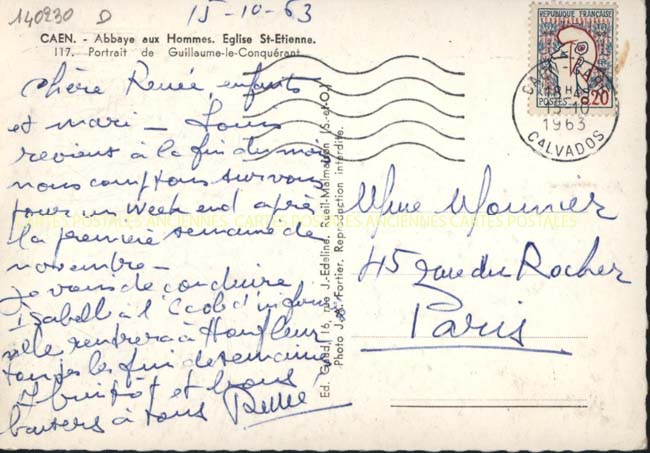 140230 D
15-10-63
CAEN. - Abbaye aux Hommes. Eglise St-Etienne.
117. Portrait de Guillaume-le-Conquérant
chère Renée, enfants
et mari - Louis
revient à la fin du mois
nous comptons sur vous
pour un week end après
la première semaine de
novembre -
Je viens de conduire
Isabelle à l'
elle rentrera à Honfleur
toutes les fin de semaine
A bientôt et bons
baisers à tous
REPUBLIQUE FRANÇAISE
POSTES 0,20
CAEN GARE
18H
15-10
1963
CALVADOS
Mme Monnier
45 rue du Rocher
Paris
Ed. Gaud, 16, rue J.-Edeline, Rueil-Malmaison (S.-et-O.)
Photo J. Fortier. Reproduction interdite.
CARTES POSTALES ANCIENNES CARTES POSTALES ANCIENNES CARTES POSTALES